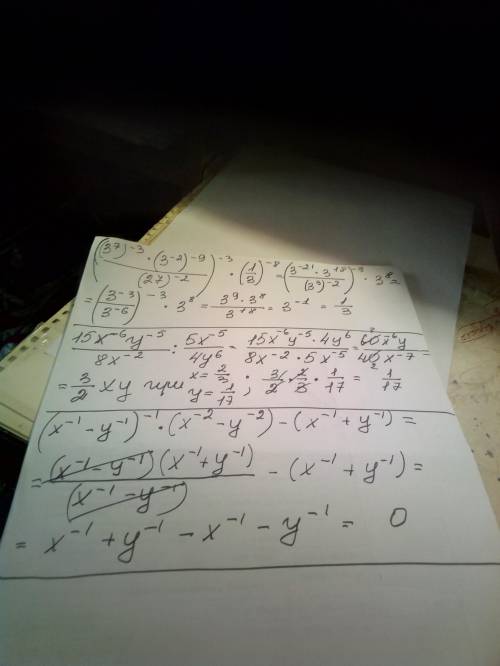 (((3⁷)⁻³ · (3⁻²)⁻⁹) / (27)⁻²)⁻³ · (1/3)⁻⁸ = ((3⁻²¹ · 3¹⁸) / (3³)⁻²)⁻³ · 3⁸ =
= (3⁻³ / 3⁻⁶)⁻³ · 3⁸ = (3⁹ · 3⁸) / 3¹⁸ = 3⁻¹ = 1/3
(15x⁻⁶y⁻⁵) / (8x⁻²) : (5x⁻⁵) / (4y⁶) = (15x⁻⁶y⁻⁵ · 4y⁶) / (8x⁻² · 5x⁻⁵) = (60x⁻⁶y) / (40x⁻⁷) =
= 3/2 xy при x = 2/3 y = 1/17 ; 3/2 · 2/3 · 1/17 = 1/17
(x⁻¹ − y⁻¹)⁻¹ · (x⁻² − y⁻²) − (x⁻¹ + y⁻¹) =
= ((x⁻¹ − y⁻¹)(x⁻¹ + y⁻¹)) / (x⁻¹ − y⁻¹) − (x⁻¹ + y⁻¹) =
= x⁻¹ + y⁻¹ − x⁻¹ − y⁻¹ = 0